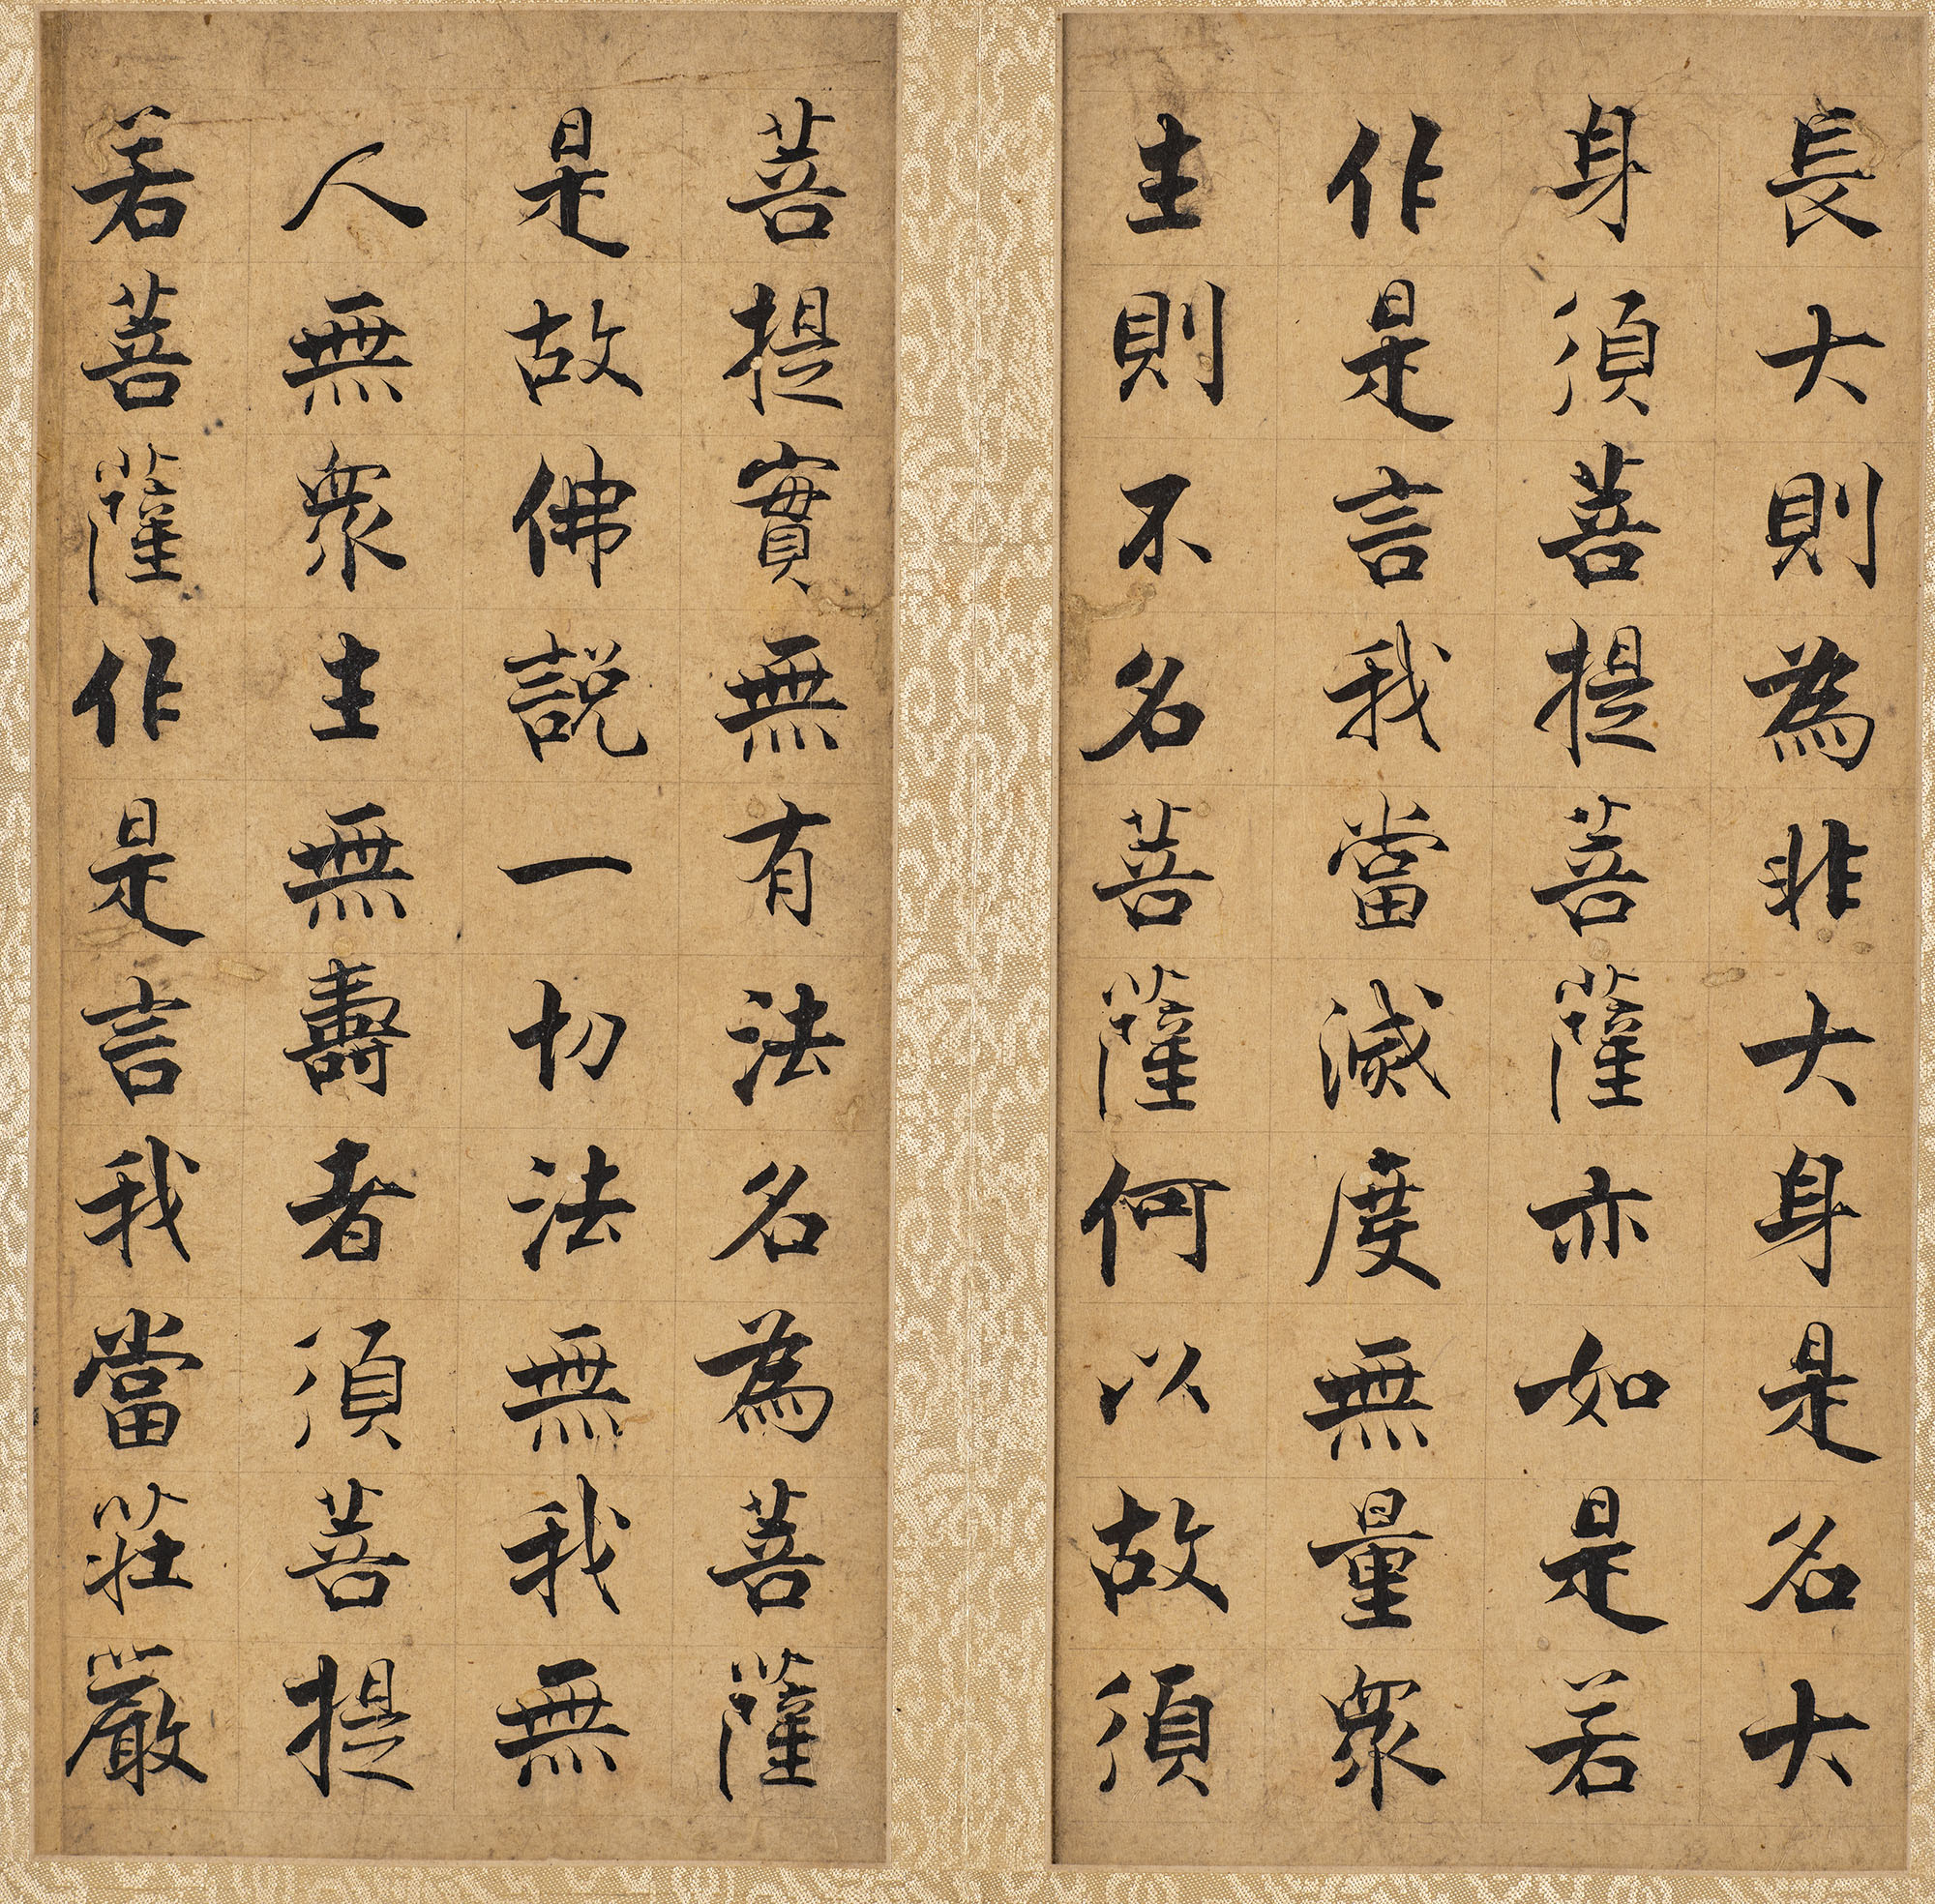 長大則為非大身是名大
身須菩提菩薩亦如是若
作是言我當滅度無量衆
主則不名菩薩何以故須
菩提實無有法名為菩薩
是故佛説一切法無我無
人無衆主無壽者須菩提
若菩薩作是言我當莊嚴